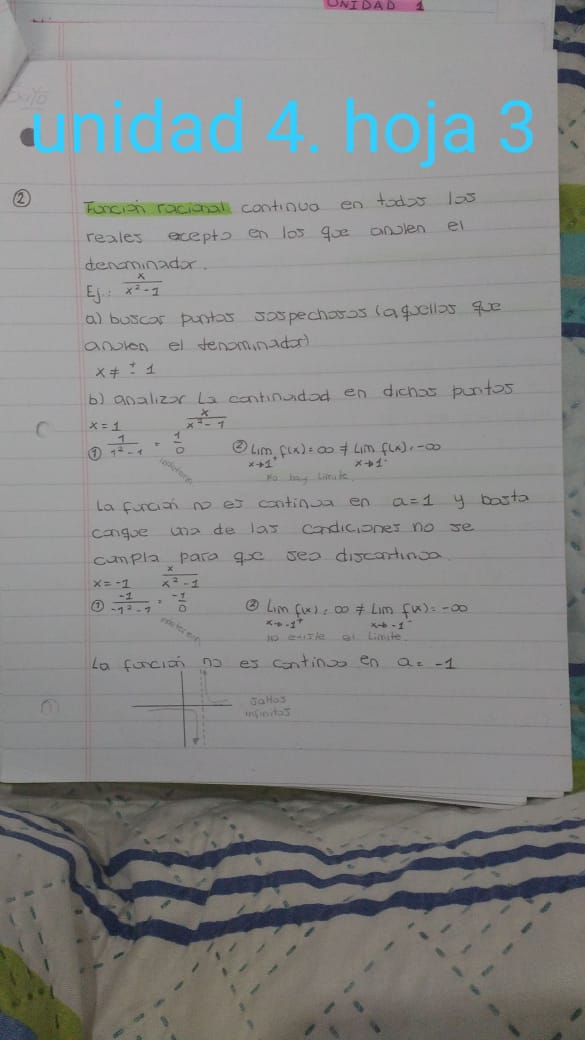 UNIDAD 1
unidad 4. hoja 3
② Función racional continua en todos los
reales excepto en los que anulen el
denominador.
Ej.: x/x²-1
a) buscar puntos sospechosos (aquellos que
anulen el denominador)
x ≠ ± 1
b) analizar la continuidad en dichos puntos
x = 1 x/x²-1
① 1/1²-1 = 1/0 ② Lim x→1⁺ f(x) = ∞ ≠ Lim x→1⁻ f(x) = -∞
No hay Limite
La función no es continua en a=1 y basta
conque una de las condiciones no se
cumpla para que sea discontinua.
x = -1 x/x²-1
① -1/-1²-1 = -1/0 ② Lim x→-1⁺ f(x) = ∞ ≠ Lim x→-1⁻ f(x) = -∞
no existe el Limite
La función no es continua en a = -1
Saltos
infinitos